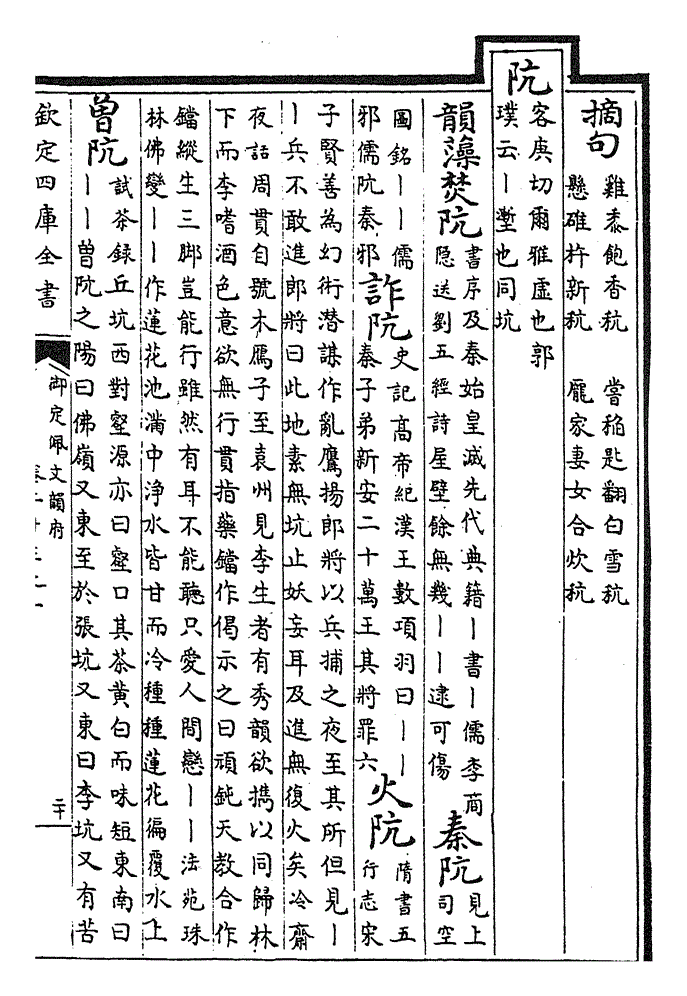 摘句 雞黍飽香秔 嘗稲匙翻白雪秔
懸碓杵新秔 龎家妻女合炊秔
阬 客庚切爾雅虛也郭
璞云丨壍也同坑
韻藻焚阬 書序及秦始皇滅先代典籍丨書丨儒李商
隐送劉五經詩屋壁餘無幾丨丨逮可傷
秦阬 見上
司空
圖銘丨丨儒
邪儒阬秦邪
詐阬 史記髙帝紀漢王數項羽曰丨丨
秦子弟新安二十萬王其將罪六
火阬 隋書五
行志宋
子賢善為幻術潜謀作亂鷹揚郎將以兵捕之夜至其所但見丨
丨兵不敢進郎將曰此地素無坑止妖妄耳及進無復火矣冷齋
夜話周貫自號木鴈子至袁州見李生者有秀韻欲擕以同歸林
下而李嗜酒色意欲無行貫指藥鐺作偈示之曰頑鈍天教合作
鐺縱生三脚豈能行雖然有耳不能聽只愛人間戀丨丨法苑珠
林佛變丨丨作蓮花池滿中淨水皆甘而冷種種蓮花徧覆水上
曽阬 試茶録丘坑西對壑源亦曰壑口其茶黄白而味短東南曰
丨丨曽阬之陽曰佛嶺又東至於張坑又東曰李坑又有苦
欽定四庫全書
御定佩文韻府
二十